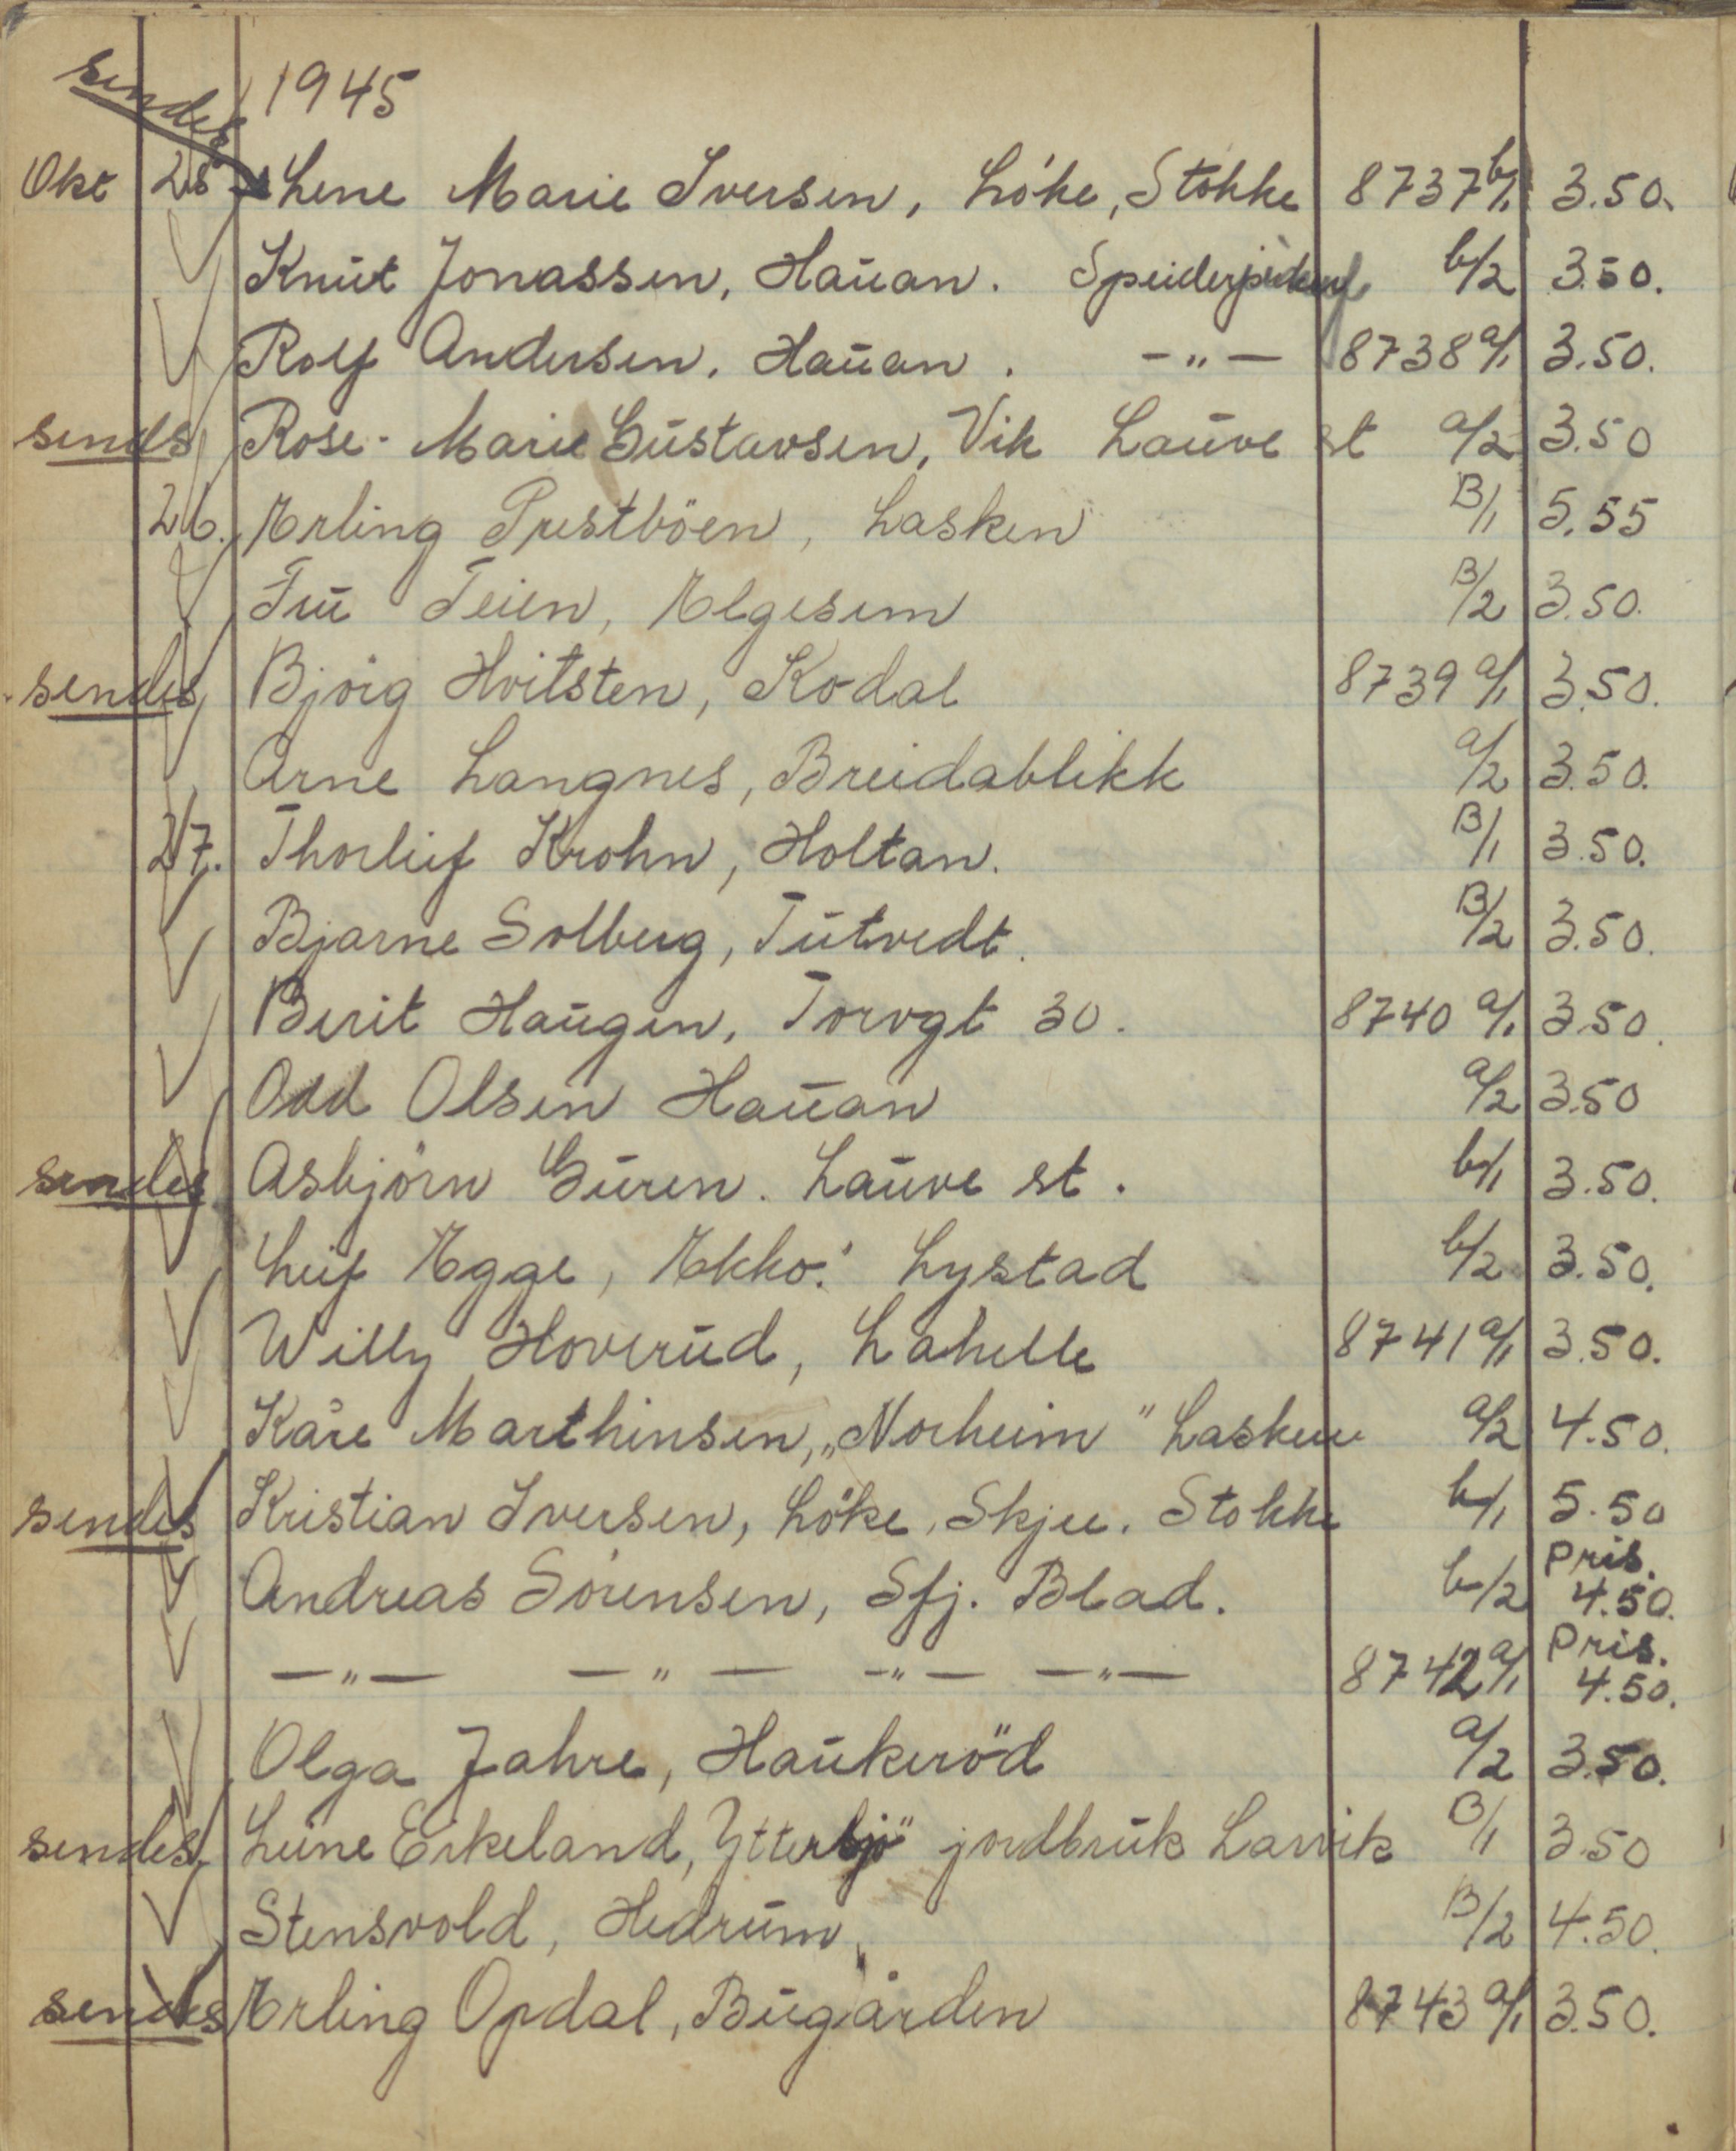 sendes 1945
Okt 25 Lene Marie Iversen, Löke, Stokke 8737 b/1 3.50.
Knut Jonassen, Hauan. b/2 3.50.
Rolf Andersen, Hauan. -"- 8738 a/1 3.50.
sends Rose-Marie Gustavsen, Vik Lauve st a/2 3.50
26. Erling Prestböen, Lasken B/1 5.55
Fru Teien, Elgesem B/2 3.50.
sendes Björg Hvitsten, Kodal 8739 a/1 3.50.
Arne Langnes, Breidablikk a/2 3.50.
27. Thorleif Krohn, Holtan. B/1 3.50.
Bjarne Solberg, Tutvedt. B/2 3.50.
Berit Haugen, Torvgt 30. 8740 a/1 3.50.
Odd Olsen Hauan a/2 3.50
sendes Asbjörn Guren. Lauve st. b/1 3.50.
Leif Egge, Ekko. Lystad b/2 3.50.
Willy Hoverud, Lahelle 8741 a/1 3.50.
Kåre Marthinsen, "Norheim" Lasken a/2 4.50.
sendes Kristian Iversen, Löke, Skjee. Stokke b/1 5.50
Andreas Sörensen, Sfj. Blad. b/2 Pris. 4.50.
-"- -"- -"- -"- 8742 a/1 Pris. 4.50.
Olga Jahre, Haukeröd a/2 3.50.
sendes Eikeland, jordbruk Larvik B/1 3.50
Stensvold, Hedrum B/2 4.50.
sendes Erling Opdal, Bugården 8743 a/1 3.50.